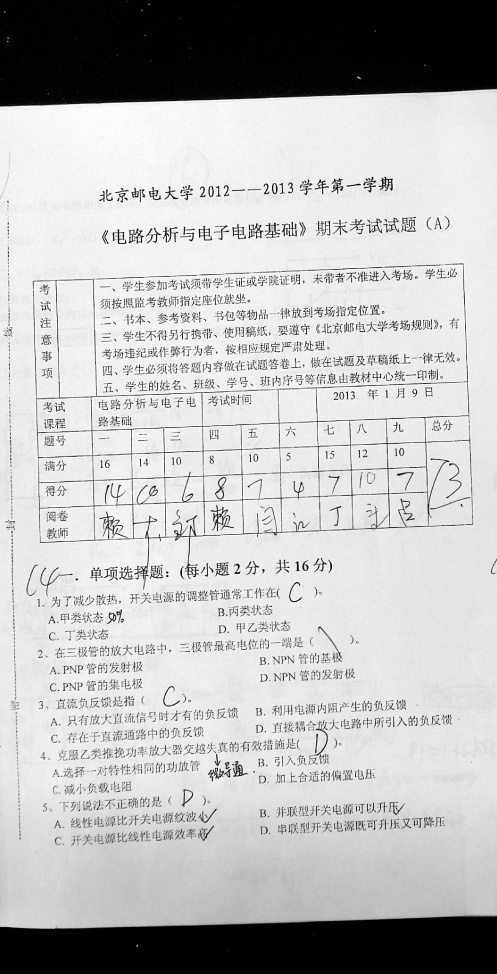 北京邮电大学 2012——2013 学年第一学期
《电路分析与电子电路基础》期末考试试题（A）
考试注意事项
一、学生参加考试须带学生证或学院证明，未带者不准进入考场。学生必
须按照监考教师指定座位就坐。
二、书本、参考资料、书包等物品一律放到考场指定位置。
三、学生不得另行携带、使用稿纸，要遵守《北京邮电大学考场规则》，有
考场违纪或作弊行为者，按相应规定严肃处理。
四、学生必须将答题内容做在试题答卷上，做在试题及草稿纸上一律无效。
五、学生的姓名、班级、学号、班内序号等信息由教材中心统一印制。
考试课程 电路分析与电子电路基础 考试时间 2013 年 1 月 9 日
题号 一 二 三 四 五 六 七 八 九 总分
满分 16 14 10 8 10 5 15 12 10
得分 14 6 8 7 4 7 10 7 73
阅卷教师 赖 赖 闫 江 丁
14 一．单项选择题：(每小题 2 分，共 16 分)
1. 为了减少散热，开关电源的调整管通常工作在( C )。
A.甲类状态 50% B.丙类状态
C. 丁类状态 D. 甲乙类状态
2、在三极管的放大电路中，三极管最高电位的一端是（ ）。
A. PNP 管的发射极 B. NPN 管的基极
C. PNP 管的集电极 D. NPN 管的发射极
3、直流负反馈是指（ C ）。
A. 只有放大直流信号时才有的负反馈 B. 利用电源内阻产生的负反馈
C. 存在于直流通路中的负反馈 D. 直接耦合放大电路中所引入的负反馈
4、克服乙类推挽功率放大器交越失真的有效措施是( D )。
A.选择一对特性相同的功放管 微导通. B. 引入负反馈
C. 减小负载电阻 D. 加上合适的偏置电压
5、下列说法不正确的是（ D ）。
A. 线性电源比开关电源纹波小 B. 并联型开关电源可以升压
C. 开关电源比线性电源效率高 D. 串联型开关电源既可升压又可降压